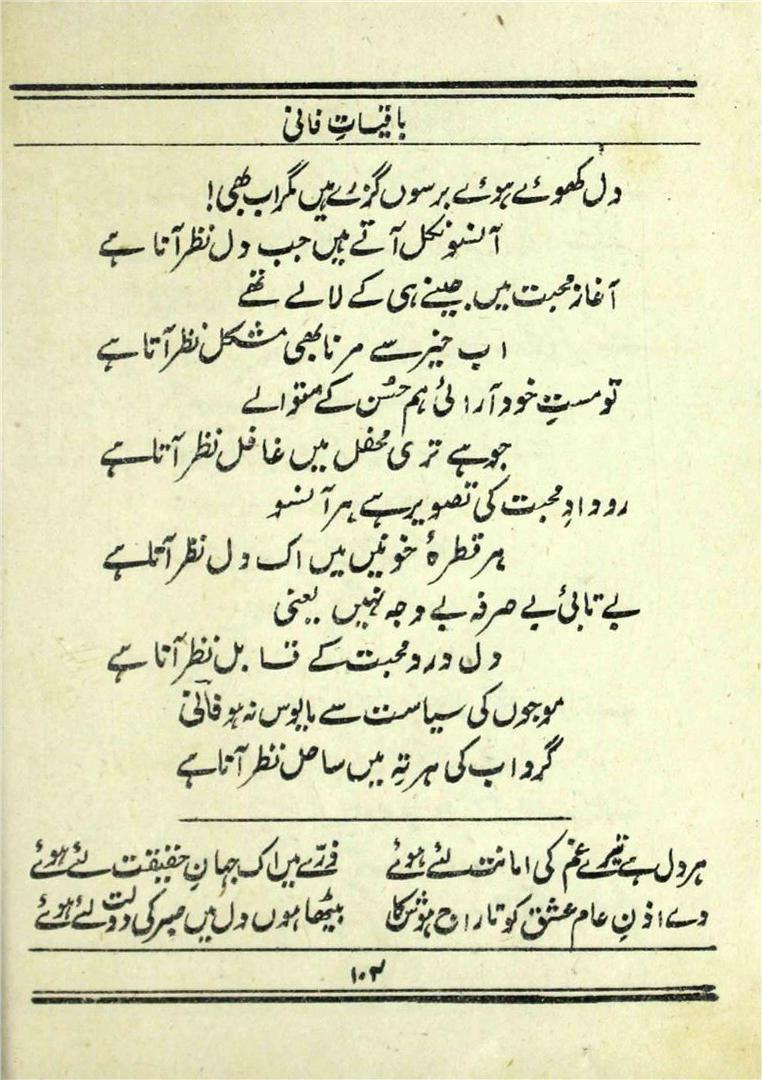 باقیاتِ فانی
دل کھوئے ہوئے برسوں گزرے ہیں مگر اب بھی!
آنسو نکل آتے ہیں جب دل نظر آتا ہے
آغازِ محبت میں جینے ہی کے لالے تھے
اب خیر سے مرنا بھی مشکل نظر آتا ہے
تو مستِ خود آرائی ہم حُسن کے متوالے
جو ہے تری محفل میں غافل نظر آتا ہے
رودادِ محبت کی تصویر ہے ہر آنسو
ہر قطرۂ خونیں میں اک دل نظر آتا ہے
بے تابیٔ بے صرفہ بے وجہ نہیں یعنی
دل دردِ محبت کے قابل نظر آتا ہے
موجوں کی سیاست سے مایوس نہ ہو فانی
گرداب کی ہر تہ میں ساحل نظر آتا ہے
ہر دل ہے تیرے غم کی امانت لئے ہوئے ذرّے میں اک جہانِ حقیقت لئے ہوئے
دے اذنِ عام عشق کو تاراج ہوش کا بیٹھا ہوں دل میں صبر کی دولت لئے ہوئے
۱۰۳